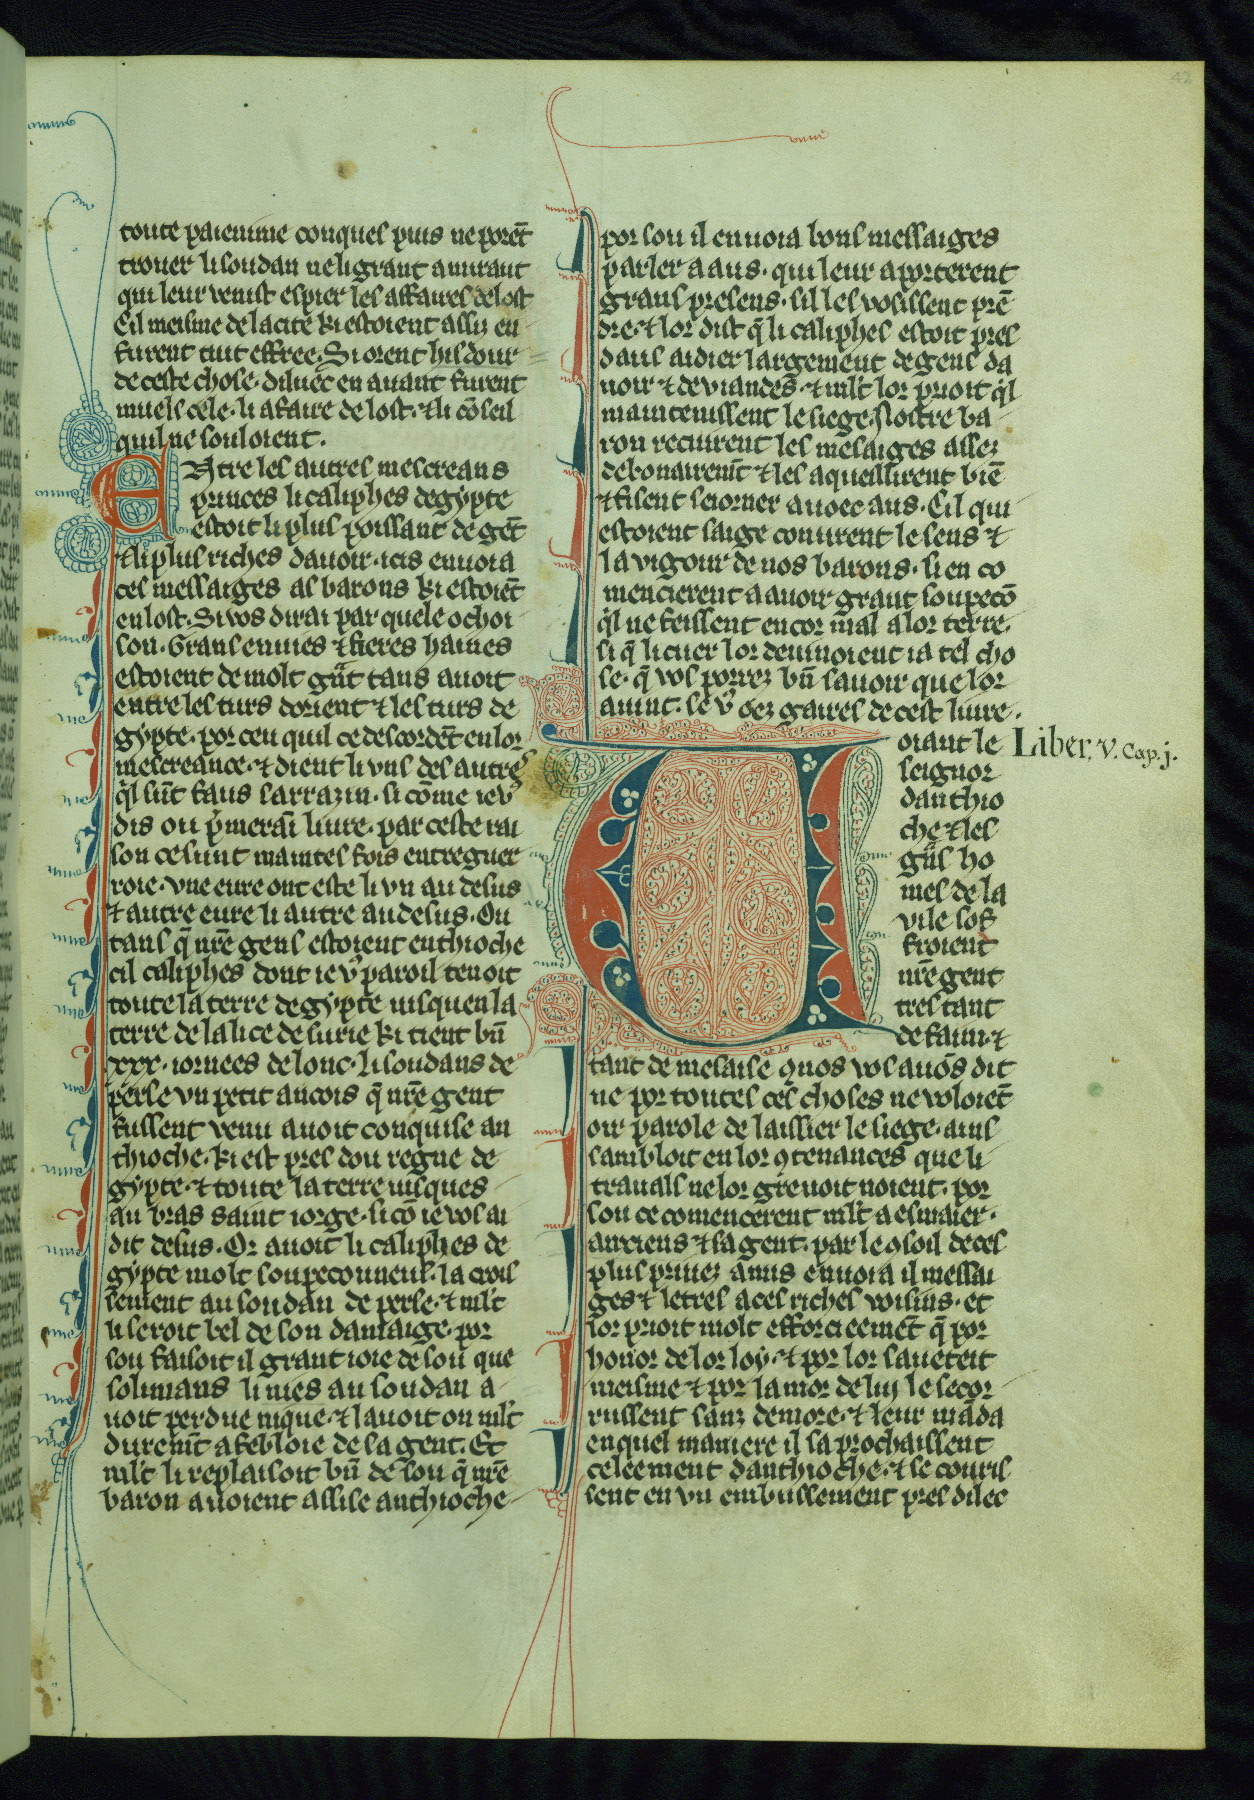 42
toute paienime conques puis ne porēt
trouer li soudan ne li grant amirant
qui leur venist espier les affaires de lost
Cil meisme de la cite ki estoient assiz en
furent tuit effree. Si orent bisdour
de ceste chose. diluec en auant furent
muels cele. li afaire de lost. ⁊ li cōseil
quil ne souloient.
Entre les autres mescreans
princes li caliphes degypte
estoit li plus poissant de gēt
⁊ li plus riches dauoir. icis enuoia
ces messaiges as barons ki estoiēt
en lost. Si vos dirai par quele ochoi
son. Grans enuies ⁊ fieres haines
estoient de molt gāt tans auoit
entre les turs dorient ⁊ les turs de
gypte. por ceu quil ce descordēt en lor
mescreance. ⁊ dient li vns des autres
q̄l sūt faus sarrazin. si cōme ie vꝰ
dis ou p̄merai liure. par ceste rai
son ce sunt maintes fois entreguer
roie. vne eure ont este li vn au desus
⁊ autre eure li autre au desus. Ou
tans q̄ nr̄e gens estoient enthioche
cil caliphes dont ie vꝰ paroil tenoit
toute la terre degypte iusquen la
terre de la lice de surie ki tient bn̄
xxx. iornees de lonc. li soudans de
perse vn petit ancois q̄ nr̄e gent
fussent venu auoit conquise an
thioche. ki est pres dou regne de
gypte. ⁊ toute la terre iusques
au bras saint iorge. si cō ie vos ai
dit desus. Or auoit li caliphes de
gypte molt soupeconneus. la crois
sement au soudan de perse. ⁊ ml't
li seroit bel de son damaige. por
sou faisoit il grant ioie de sou que
solimans li nies au soudan a
uoit perdue nique. ⁊ lauoit on ml't
durem̄t afebloie de sa gent. Et
ml't li replaisoit bn̄ de sou q̄ nr̄e
baron auoient assise anthioche
por sou il enuoia bons messaiges
parler a aus. qui leur aporterent
grans presens. sil les vosissent prē
dre. ⁊ lor dist q̄ li caliphes estoit pres
daus aidier largement de gens da
uoir ⁊ de viandes. ⁊ ml't lor prioit q̄l
maintenissent le siege. nostre ba
ron reciurent les mesaiges assez
debonairem̄t ⁊ les aqueillirent biē
⁊ fisent seiorner auoec aus. Cil qui
estoient saige conurent le sens ⁊
la vigour de nos barons. si en co
mencierent a auoir grant soupecō
q̄l ne feissent encor mal a lor terre.
si q̄ li cuer lor deuinoient ia tel cho
se. q̄ vos porrez bn̄ sauoir que lor
auint. se vꝰ oez gaires de cest liure.
Uoiant le
seignor
danthio
che ⁊ les
gn̄s ho
mes de la
vile sof
froient
nr̄e gent
tres tant
de faim. ⁊
Liber. v. Cap. j.
tant de mesaise q̄ nos vos auōs dit
ne por toutes ces choses ne voloiēt
oir parole de laissier le siege. ains
sambloit en lor ꝯtenances que li
trauals ne lor greuoit noient. por
sou ce comencerent ml't a esmaier.
anxiens ⁊ sa gent. par le ꝯsoil de ces
plus priuez amis enuoia il messai
ges ⁊ letres a ces riches voisins. et
lor prioit molt efforcieemēt q̄ por
honor de lor loy. ⁊ por lor saueteit
meisme ⁊ por lamor de lui le secor
russent sanz demore. ⁊ leur māda
en quel maniere il saprochaissent
celeement danthioche. ⁊ se couris
sent en vn embussement pres dilec